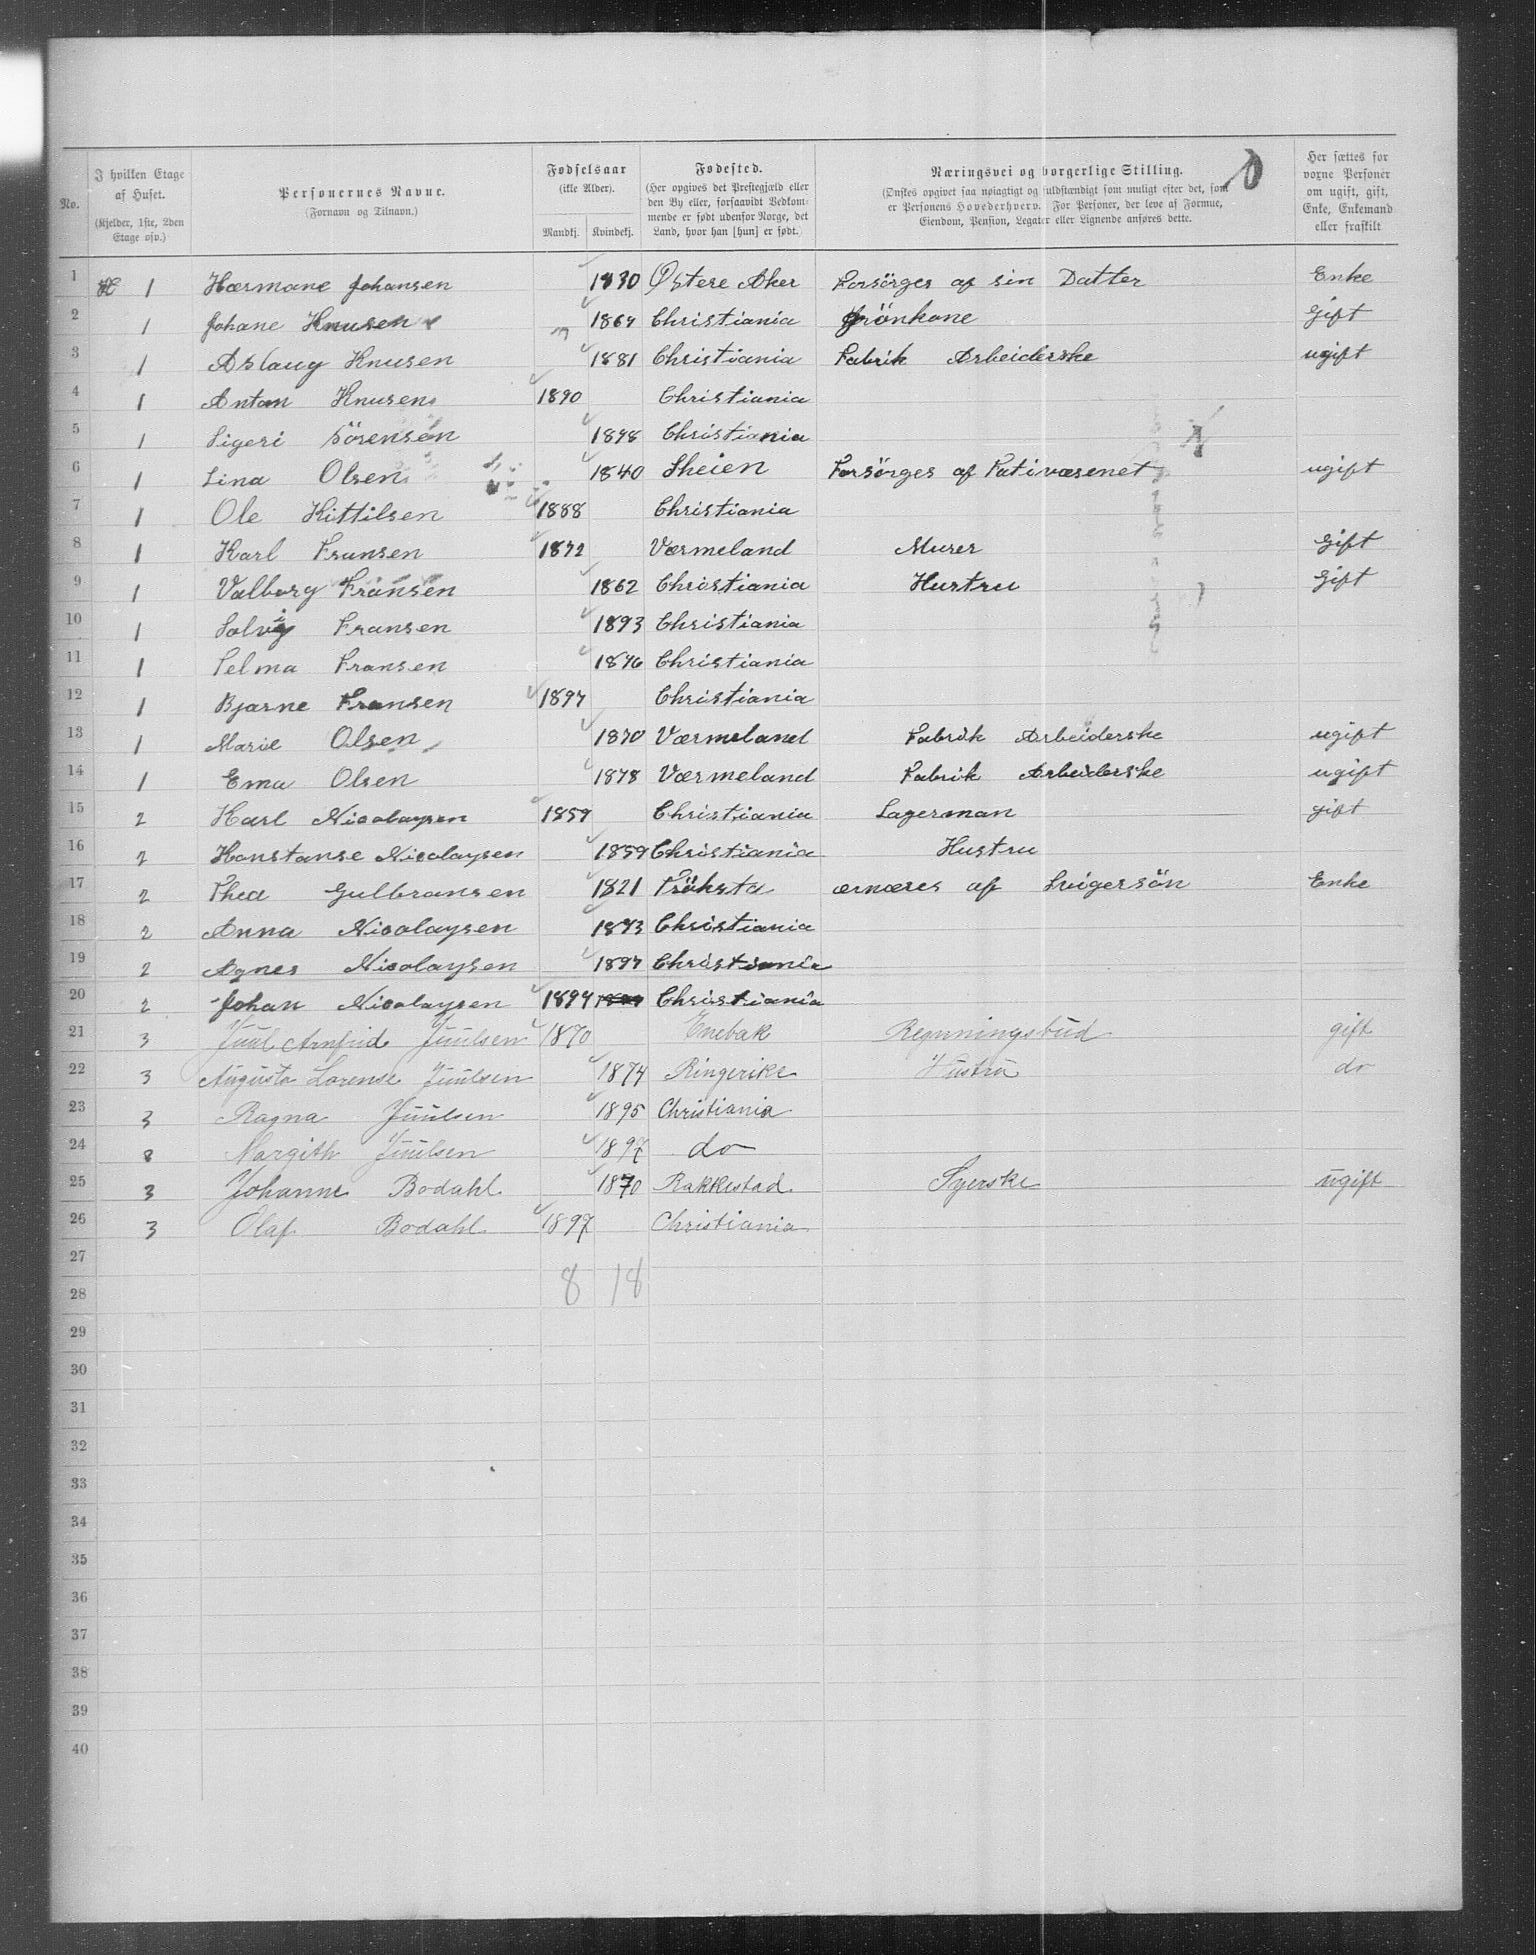 No. | I hvilken Etage af Huset. (Kjelder, 1ste, 2den Etage osv.) | Personernes Navne. (Fornavn og Tilnavn.) | Fødselsaar (ikke Alder). Mandkj. Kvindekj. | Fødested. (Her opgives det Prestegjæld eller den By eller, forsaavidt Vedkommende er født udenfor Norge, det Land, hvor han [hun] er født.) | Næringsvei og borgerlige Stilling. (Ønskes opgivet saa nøiagtigt og fuldstændigt som muligt efter det, som er Personens Hovederhverv. For Personer, der leve af Formue, Eiendom, Pension, Legater eller Lignende anføres dette. | Her sættes for voxne Personer om ugift, gift, Enke, Enkemand eller fraskilt
1 1 Hermane Johansen 1830 Østere Aker Forsörges af sin Datter Enke
2 1 Johane Knusen 1864 Christiania Grönkone Gift
3 1 Aslaug Knusen 1881 Christiania Fabrik Arbeiderske ugift
4 1 Anton Knusen 1890 Christiania
5 1 Sigeri Sörensen 1898 Christiania
6 1 Lina Olsen 1840 Skeien Forsörges af Fativæsenet ugift
7 1 Ole Kittilsen 1888 Christiania
8 1 Karl Fransen 1872 Værmeland Murer Gift
9 1 Valborg Fransen 1862 Christiania Hustru Gift
10 1 Solvig Fransen 1893 Christiania
11 1 Selma Fransen 1896 Christiania
12 1 Bjarne Fransen 1897 Christiania
13 1 Marie Olsen 1870 Værmeland Fabrik Arbeiderske ugift
14 1 Ema Olsen 1878 Værmeland Fabrik Arbeiderske ugift
15 2 Karl Nicolaysen 1859 Christiania Lagerman gift
16 2 Konstanse Nicolaysen 1859 Christiania Hustru
17 2 Thea Gulbransen 1821 Tröksta ernæres af Svigersön Enke
18 2 Anna Nicolaysen 1893 Christiania
19 2 Agnes Nicolaysen 1897 Christiania
20 2 Johan Nicolaysen 1894 Christiania
21 3 Juul Arnfrid Juulsen 1870 Enebak Regnningsbud gift
22 3 Augusta Lorense Juulsen 1874 Ringerike Hustru do
23 3 Ragna Juulsen 1895 Christiania
24 3 Margith Juulsen 1897 do
25 3 Johanne Bodahl 1870 Rakkestad Syerske ugift
26 3 Olaf Bodahl 1897 Christiania
27
28 8 18
29
30
31
32
33
34
35
36
37
38
39
40